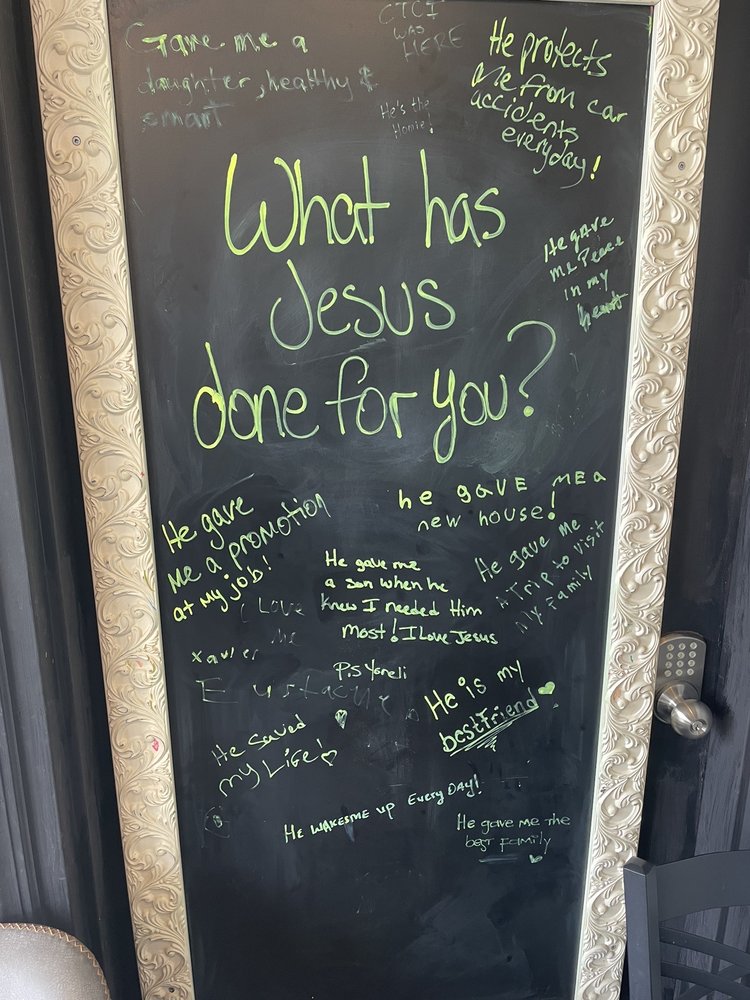 Gave me a
daughter, healthy &
smart
CTCI
was
HERE
He's the
Homie!
He protects
me from car
accidents
everyday!
He gave
me Peace
in my
heart
What has
Jesus
done for you?
He gave
me a promotion
at my job!
he gave me a
new house!
He gave me
a son when he
knew I needed Him
most! I Love Jesus
He gave me
A Trip to visit
My Family
I Love
Me
Xavier
Pis Yoreli
He is my
bestfriend
He Saved
my Life!
He wakesme up Every DAY!
He gave me the
best Family